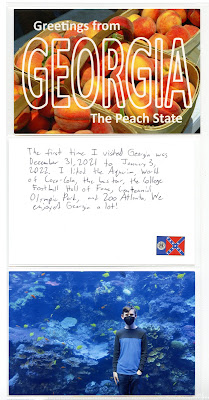 Greetings from
GEORGIA
The Peach State
The first time I visited Georgia was
December 31, 2021 to January 3,
2022. I liked the Aquarium, World
of Coca-Cola, the bus tour, the College
Football Hall of Fame, Centennial
Olympic Park, and Zoo Atlanta. We
enjoyed Georgia a lot!